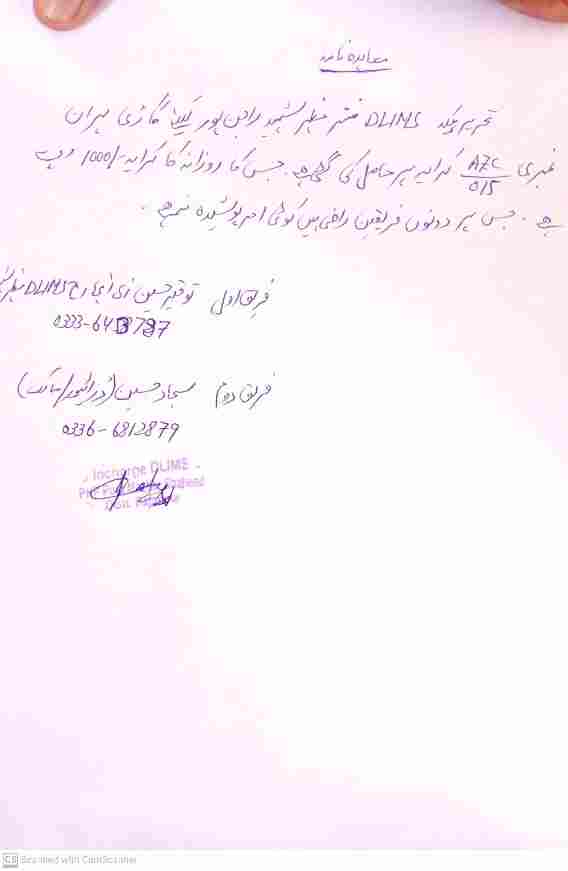 معاہدہ نامہ
تحریر ہیکہ DLIMS راجن پور کیلئے گاڑی مہران
نمبری AZC 015 کرایہ پر حاصل کی گئی ہے۔ جس کا روزانہ کا کرایہ -/1000 روپے
ہے۔ جس پر دونوں فریقین راضی ہیں کوئی امر پوشیدہ نہ ہے۔
فریق اول توقیر حسین DLIMS
فریق دوم سجاد حسین (ڈرائیور/مالک)
0336-6812879
Incharge DLIMS
CS Scanned with CamScanner